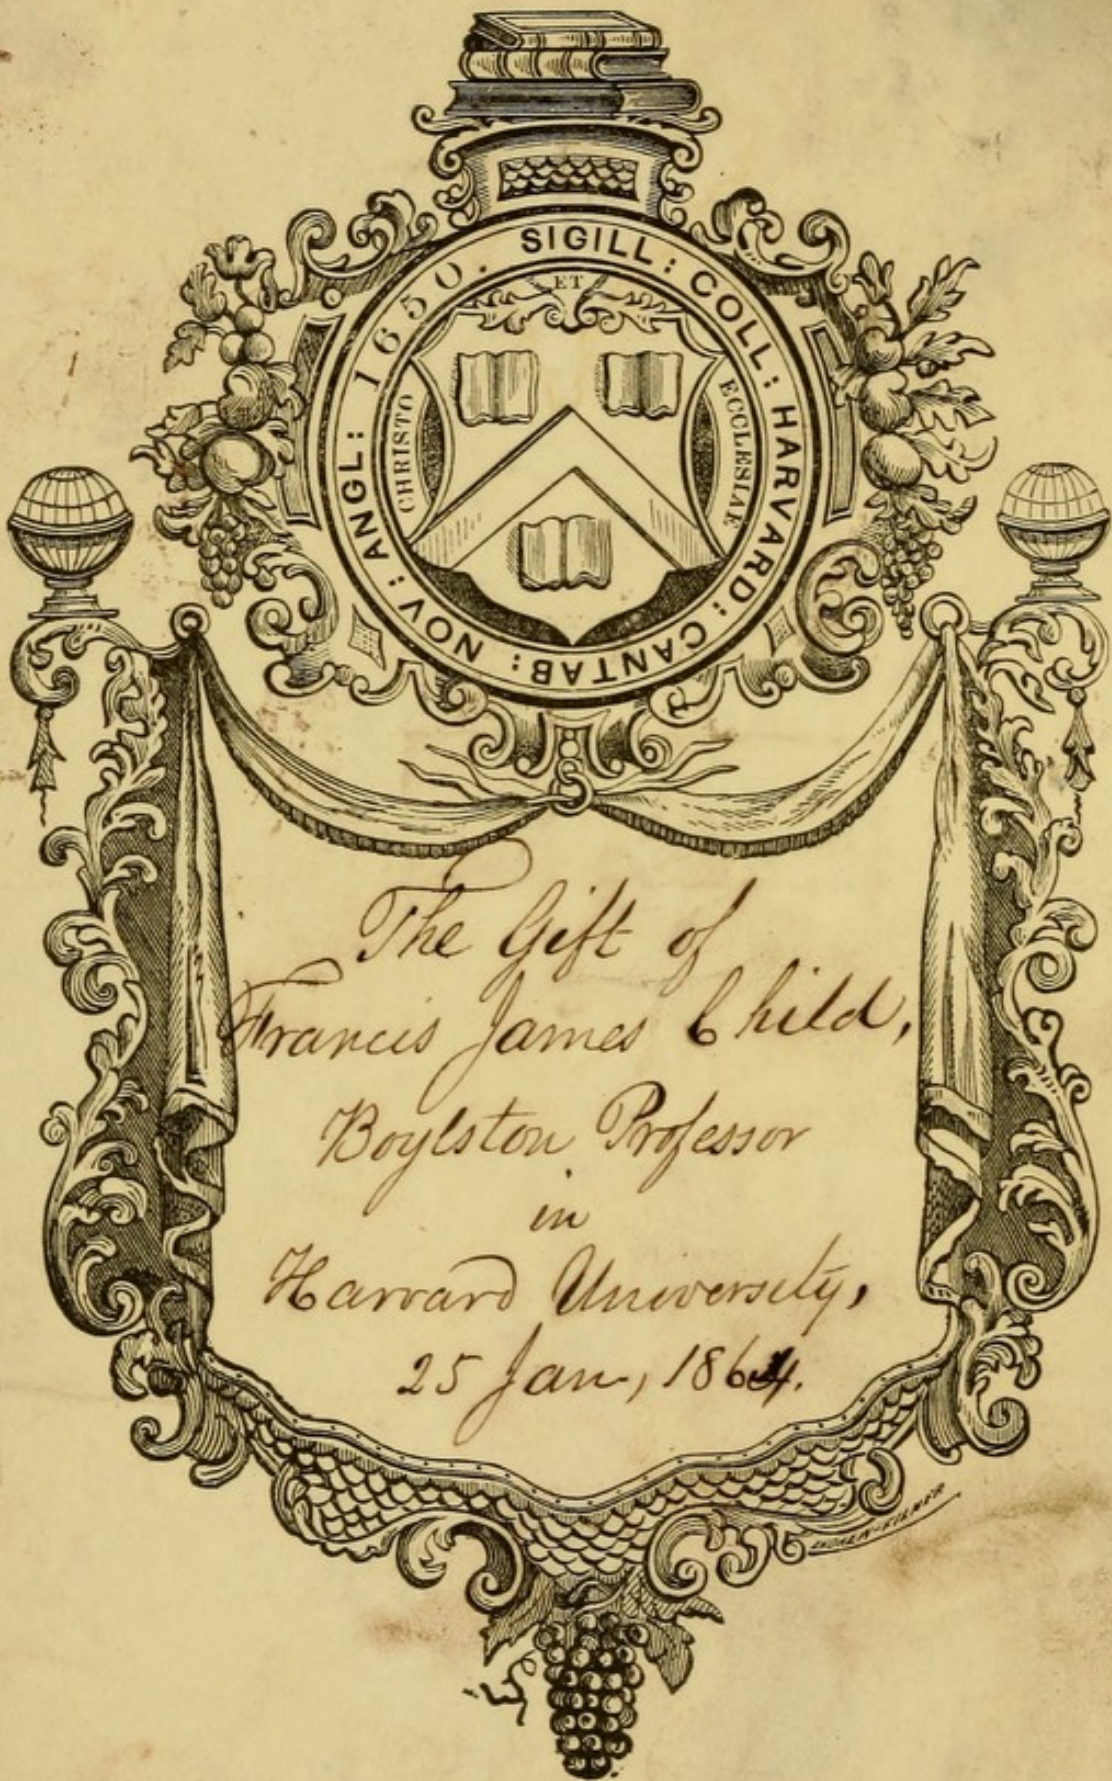 SIGILL: COLL: HARVARD: CANTAB: NOV: ANGL: 1650.
CHRISTO ET ECCLESIAE
The Gift of
Francis James Child,
Boylston Professor
in
Harvard University,
25 Jan, 1864.